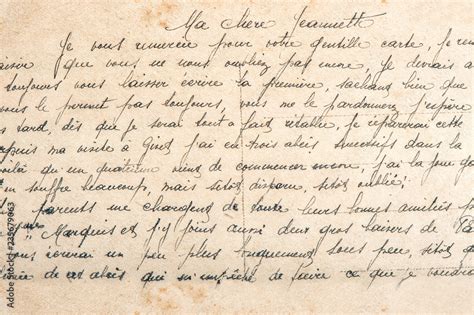 Ma chère Jeannette
Je vous remercie pour votre gentille carte, je
plaisir que vous ne nous oubliez pas encore, je devrais
toujours vous laisser écrire la première, sachant bien que
vous le permet pas toujours, vous me le pardonnerez j'espère
tard, dès que je serai tout à fait rétablie, je réparerai cette
depuis ma visite à j'ai eu trois abcès successifs dans la
qu'un quatrième vient de commencer encore, j'ai la joue
souffre beaucoup, mais sitôt disparu, sitôt oublié!
parents me chargent de toute leurs bonnes amitiés
Marquis et j'y joins aussi deux gros baisers de
un peu plus longuement sous peu, sitôt
de ces abcès qui de suivre ce que je voudrais
Adobe Stock | 235679063
Adobe Stock